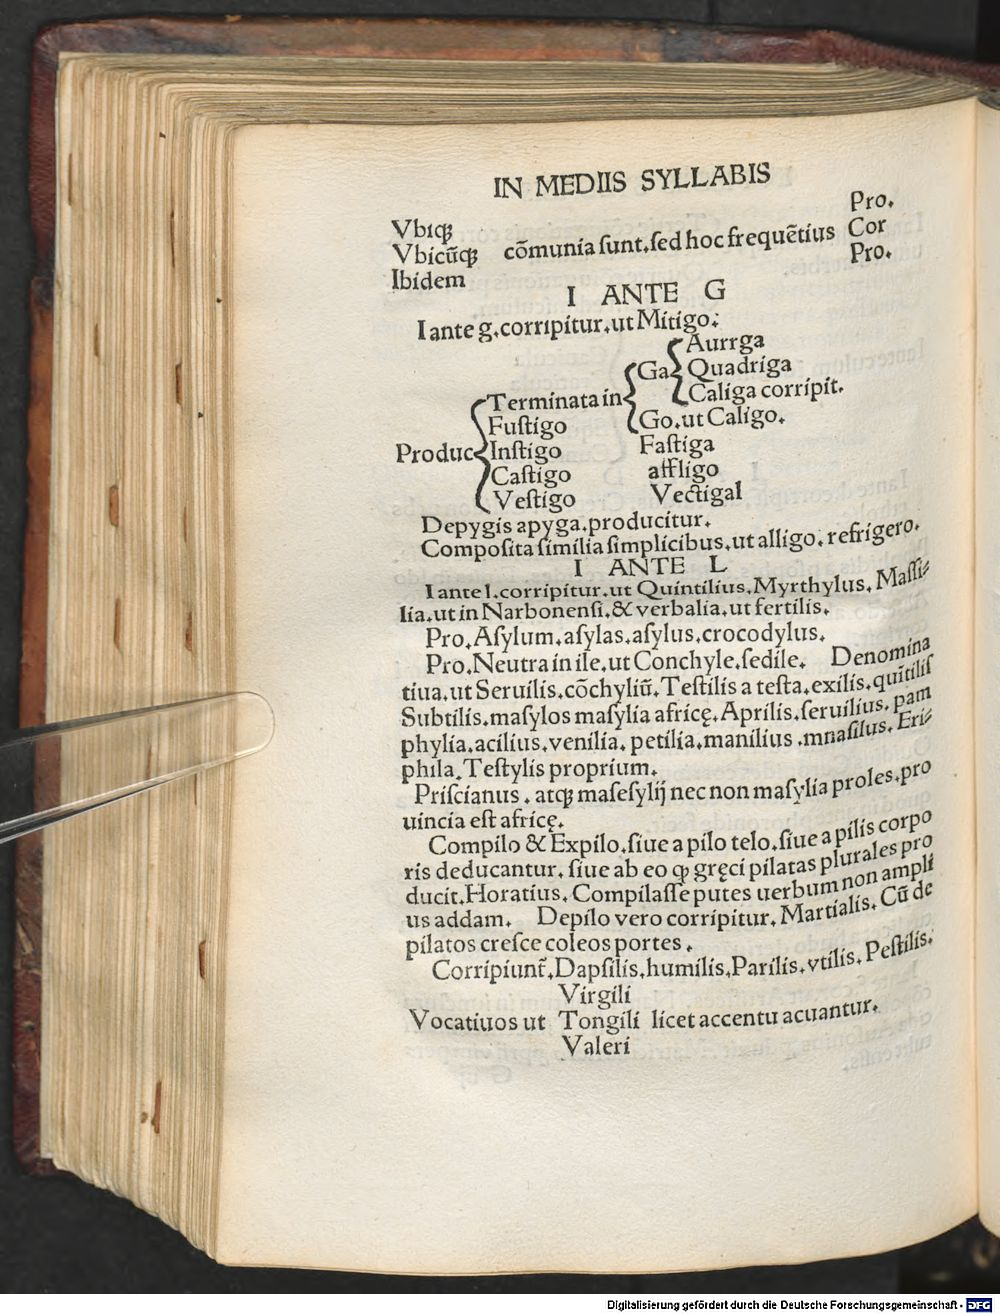 IN MEDIIS SYLLABIS
Vbiqꝫ Pro.
Vbicūqꝫ cōmunia ſunt.ſed hoc frequētius Cor
Ibidem Pro.
I ANTE G
I ante g.corripitur.ut Mitigo:
Aurrga
Ga Quadriga
Caliga corripit.
Terminata in
Go.ut Caligo.
Fuſtigo Faſtiga
Produc Inſtigo affligo
Caſtigo Vectigal
Veſtigo
Depygis apyga.producitur.
Compoſita ſimilia ſimplicibus.ut alligo.refrigero.
I ANTE L
I ante l.corripitur.ut Quintilius.Myrthylus. Maſſi-
lia.ut in Narbonenſi.& verbalia.ut fertilis.
Pro.Aſylum.aſylas.aſylus.crocodylus.
Pro.Neutra in ile.ut Conchyle.ſedile. Denomina
tiua.ut Seruilis.cōchyliū.Teſtilis a teſta.exilis.quītilis
Subtilis.maſylos maſylia africę.Aprilis.ſeruilius.pam
phylia.acilius.venilia.petilia.manilius.mnaſilus. Eri-
phila.Teſtylis proprium.
Priſcianus.atqꝫ maſeſylij nec non maſylia proles.pro
uincia eſt africę.
Compilo & Expilo.ſiue a pilo telo.ſiue a pilis corpo
ris deducantur. ſiue ab eo ꝙ gręci pilatas plurales pro
ducit.Horatius.Compilaſſe putes uerbum non ampli
us addam. Depilo vero corripitur.Martialis.Cū de
pilatos creſce coleos portes.
Corripiunt̄.Dapſilis,humilis.Parilis.vtilis.Peſtilis.
Virgili
Vocatiuos ut Tongili licet accentu acuantur.
Valeri
Digitalisierung gefördert durch die Deutsche Forschungsgemeinschaft - DFG